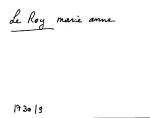 Le Roy marie anne
1730/9